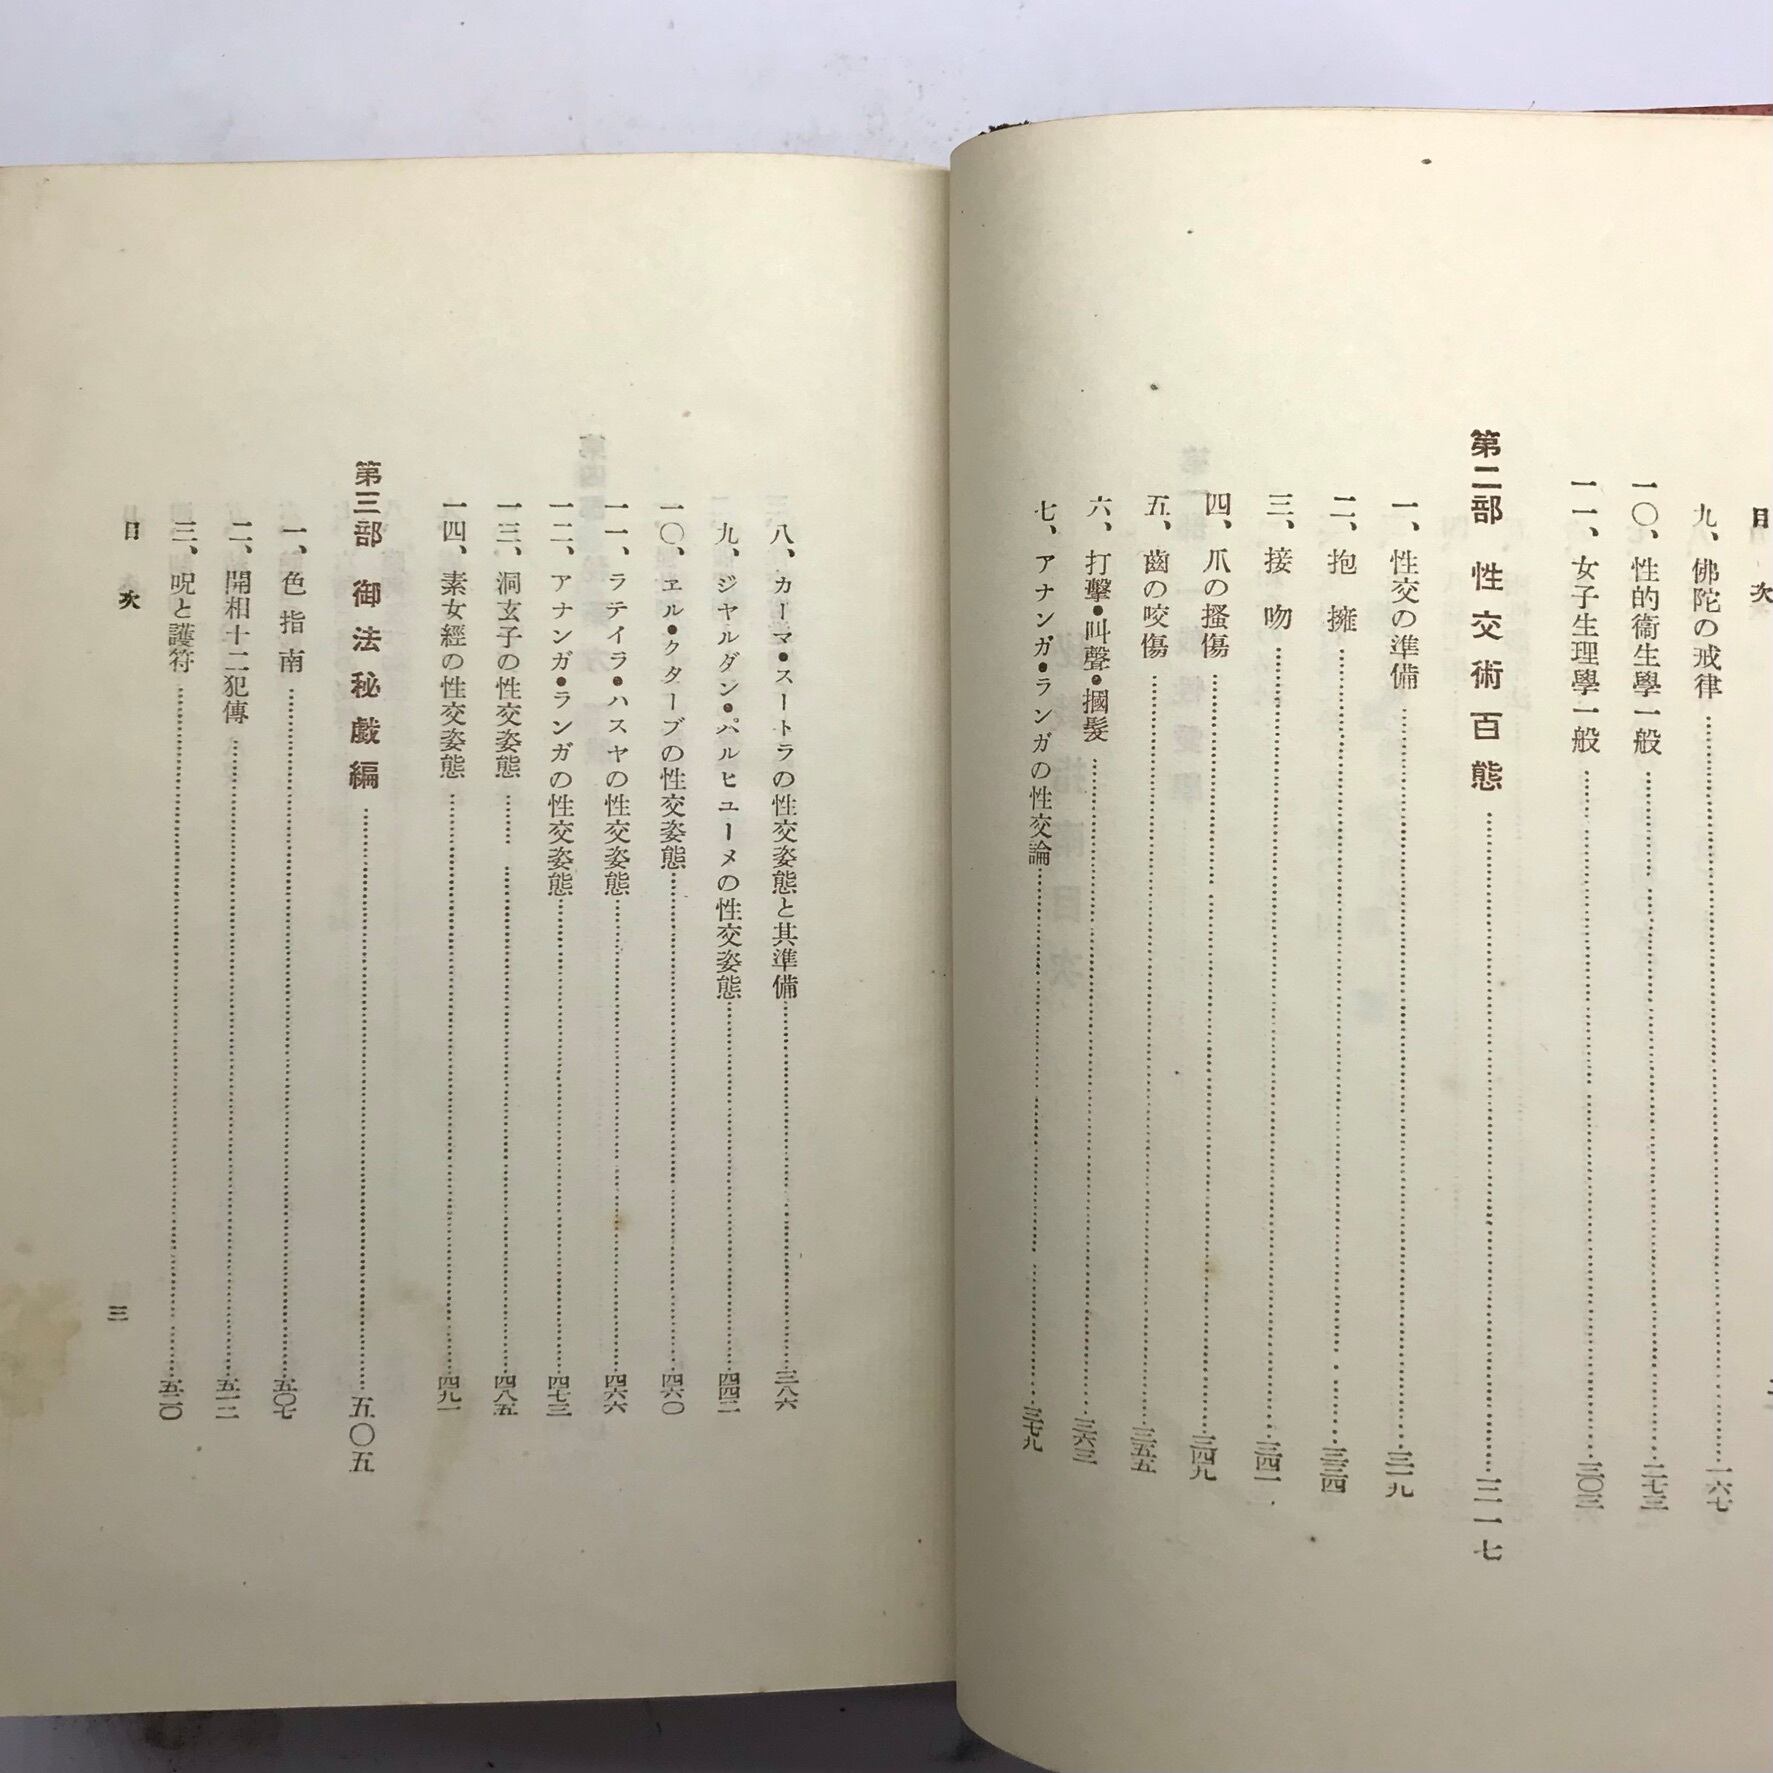 目次
九、佛陀の戒律…………一六七
一〇、性的衞生學一般…………二七三
一一、女子生理學一般…………三〇三
第二部 性交術百態…………三一七
一、性交の準備…………三一九
二、抱擁…………三三四
三、接吻…………三四一
四、爪の搔傷…………三四九
五、齒の咬傷…………三五五
六、打擊・叫聲・摑髮…………三六三
七、アナンガ・ランガの性交論…………三七九
八、カーマ・スートラの性交姿態と其準備…………三八六
九、ジヤルダン・パルヒユーメの性交姿態…………四四二
一〇、エル・クターブの性交姿態…………四六〇
一一、ラテイラ・ハスヤの性交姿態…………四六六
一二、アナンガ・ランガの性交姿態…………四七三
一三、洞玄子の性交姿態…………四八五
一四、素女經の性交姿態…………四九一
第三部 御法秘戯編…………五〇五
一、色指南…………五〇七
二、開相十二犯傳…………五一二
三、呪と護符…………五二〇
目次
三